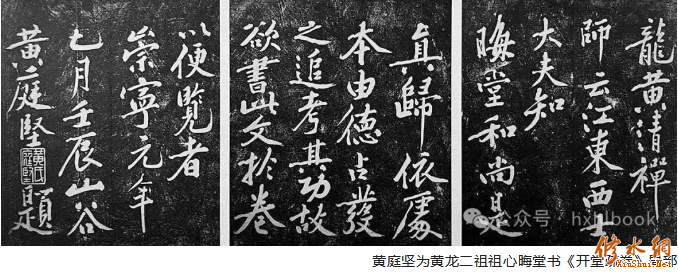 龍黃清禪
師云江東西士
大夫知
晦堂和尚是
真歸依處
本由德占發
之追考其功故
欲書此文於卷
以便覽者
崇寧元年
七月壬辰山谷
黃庭堅題
公众号 hxhlbook
修水网
黄庭坚为黄龙二祖祖心晦堂书《开堂